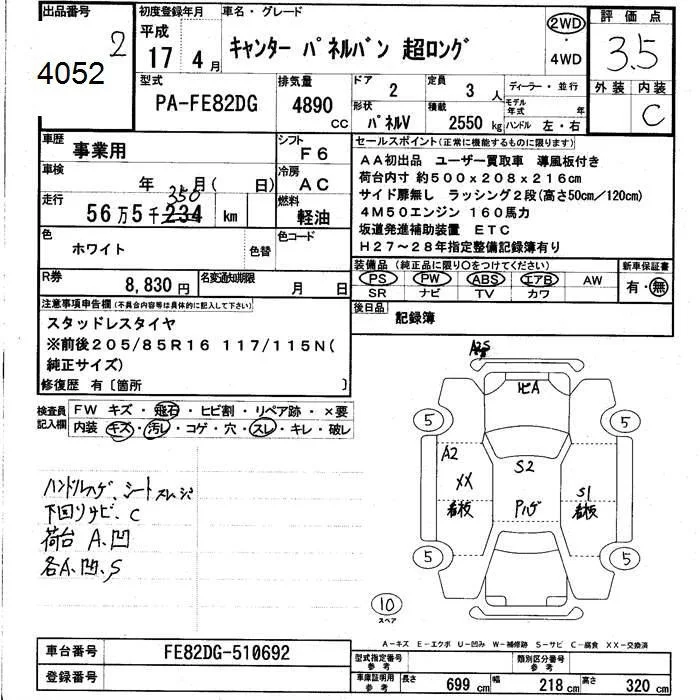 出品番号 初度登録年月 車名・グレード 2WD 評価点
2 平成 4WD 3.5
4052 17年4月 キャンター パネルバン 超ロング
型式 排気量 ドア 2 定員 3人 ディーラー・並行 外装 内装
PA-FE82DG 4890cc 形状 パネルV 積載 2550kg モデル年式 年 C
ハンドル 左・右
車歴 事業用 シフト F6 セールスポイント(正常に機能するものに限ります)
車検 年 月(日) 冷房 AC AA初出品 ユーザー買取車 導風板付き
荷台内寸 約500×208×216cm
走行 56万5千234 350 km 燃料 軽油 サイド扉無し ラッシング2段(高さ50cm/120cm)
4M50エンジン 160馬力
色 ホワイト 色替 色コード 坂道発進補助装置 ETC
H27~28年指定整備記録簿有り
R券 8,830円 名変通知期限 月 日 装備品(純正品に限り○をつけてください) 新車保証書
PS PW ABS エアB AW 有・無
SR ナビ TV カワ
注意事項申告欄(不具合内容等は具体的に記入して下さい) 後日品 記録簿
スタッドレスタイヤ
※前後205/85R16 117/115N(
純正サイズ)
修復歴 有〔箇所 〕
検査員記入欄 FW キズ・飛石・ヒビ割・リペア跡・×要
内装 キズ・汚レ・コゲ・穴・スレ・キレ・破レ
ヒA
5 5
A2
XX S2 S1
看板 Pハゲ 看板
シートスレ
下回りサビ、C
荷台 A、凹
各A、凹、S
5 5
10
スペア
A-キズ E-エクボ U-凹み W-補修跡 S-サビ C-腐食 XX-交換済
車台番号 FE82DG-510692 型式指定番号 参考 類別区分番号 参考
登録番号 車庫証明用 参考 長さ 699cm 幅 218cm 高さ 320cm